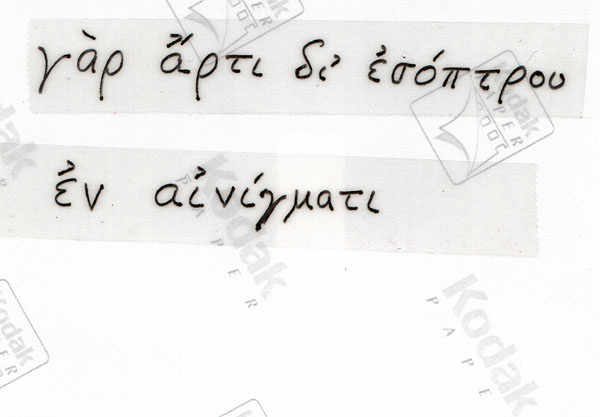 γὰρ ἄρτι δἰ ἐσόπτρου
ἔν αἰνίγματι
Kodak
PAPER
Kodak
PAPER
Kodak
PAPER
Kodak
PAPER
Kodak
PAPER